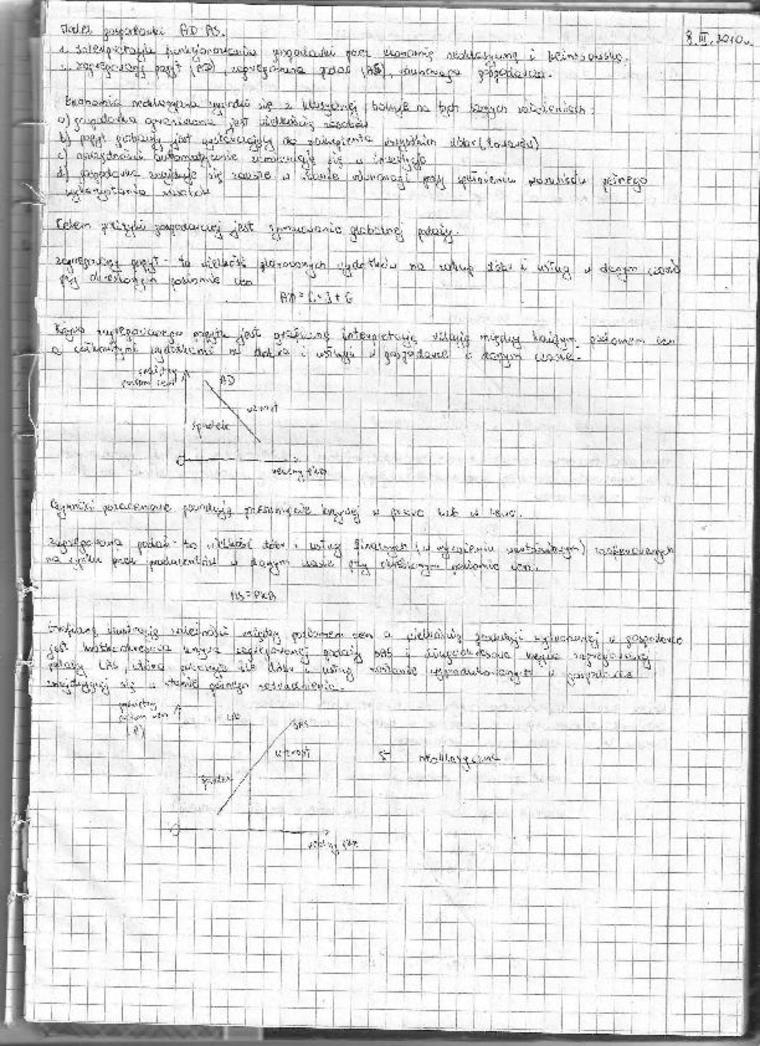 8.III.2010r.
Model gospodarki AD AS.
1. Interpretacja funkcjonowania gospodarki przez ekonomię neoklasyczną i keinsowską.
2. zagregowany popyt (AD), zagregowana podaż (AS), równowaga gospodarcza.
Ekonomia neoklasyczna wywodzi się z klasycznej, bazuje na tych samych założeniach:
a) gospodarka ograniczona jest wielkością zasobów
b) popyt globalny jest wystarczający do zakupienia wszystkich dóbr (towarów)
c) oszczędności automatycznie zamieniają się w inwestycje
d) gospodarka znajduje się zawsze w stanie równowagi przy spełnieniu warunków pełnego
wykorzystania
Celem polityki gospodarczej jest stymulowanie globalnej podaży.
zagregowany popyt - to wielkość planowanych wydatków na zakup dóbr i usług w danym czasie
przy określonym poziomie cen
AD = C + I + G
Krzywa zagregowanego popytu jest graficzną interpretacją relacji między każdym poziomem cen
a całkowitymi wydatkami na dobra i usługi w gospodarce w danym czasie.
przeciętny
poziom cen
AD
wzrost
spadek
0
realny PKB
Czynniki pozacenowe powodują przesunięcie krzywej w prawo lub w lewo.
Zagregowana podaż - to wielkość dóbr i usług finalnych (w wyrażeniu wartościowym) zaoferowanych
na rynku przez producentów w danym czasie przy określonym poziomie cen.
AS = PKB
Graficzną ilustracją zależności między poziomem cen a wielkością produkcji wytworzonej w gospodarce
jest krótkookresowa krzywa zagregowanej podaży SAS i długookresowa krzywa zagregowanej
podaży LAS, która pokazuje ile dóbr i usług zostanie wyprodukowanych w gospodarce
znajdującej się w stanie pełnego zatrudnienia.
przeciętny
poziom cen
(P)
LAS
SAS
wzrost
spadek
neoklasyczne
0
realny PKB